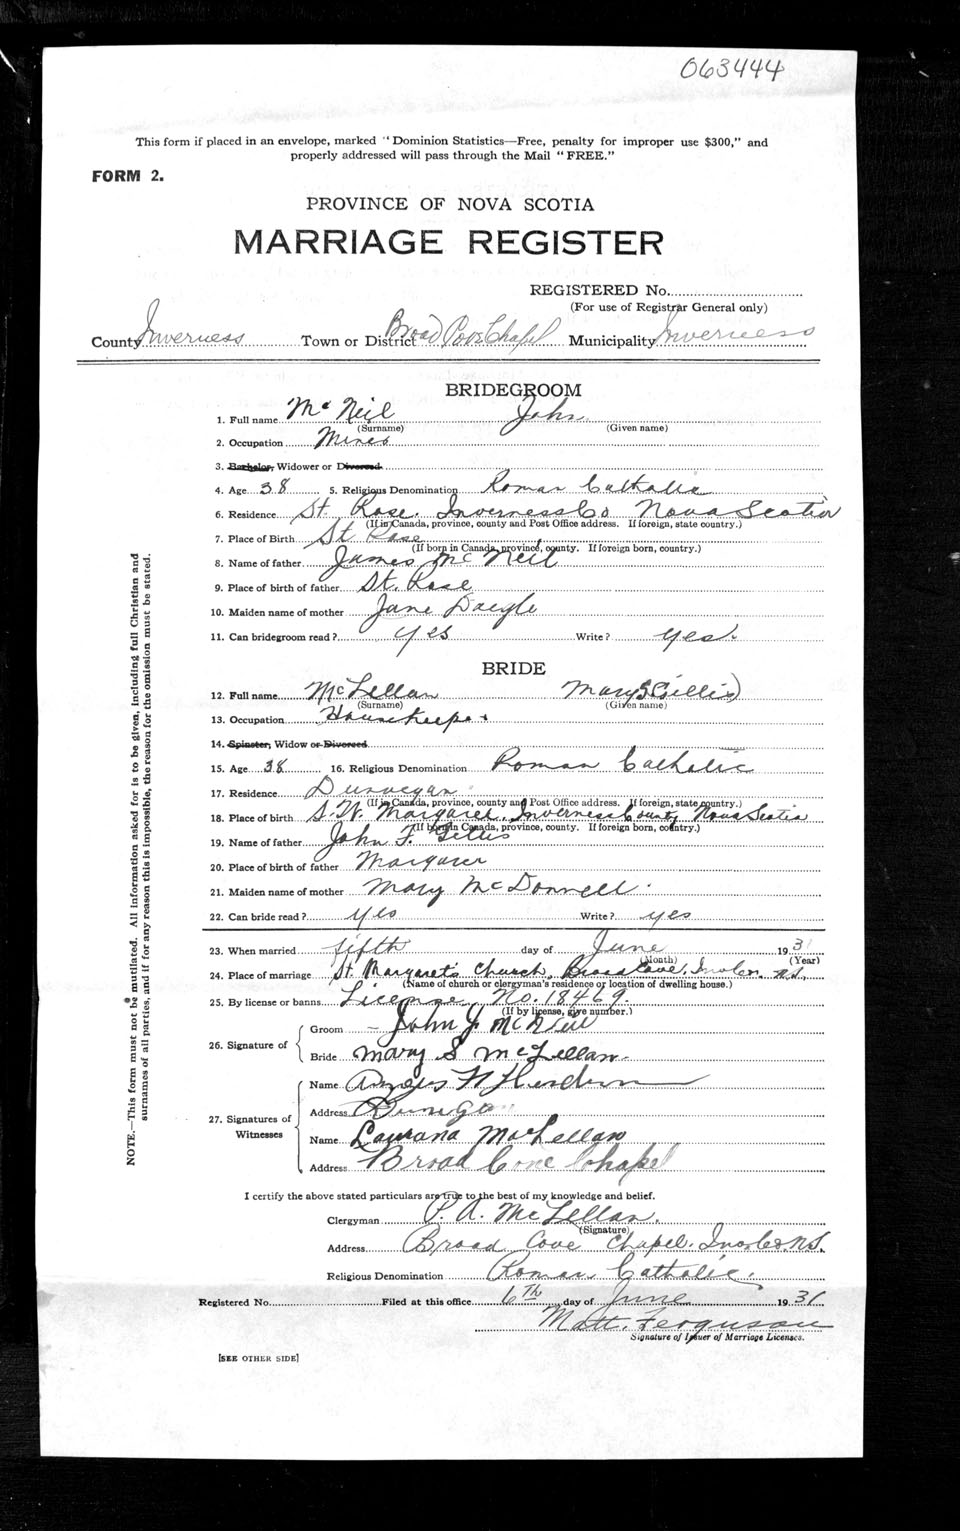 063444
This form if placed in an envelope, marked "Dominion Statistics—Free, penalty for improper use $300," and
properly addressed will pass through the Mail "FREE."
FORM 2.
PROVINCE OF NOVA SCOTIA
MARRIAGE REGISTER
REGISTERED No.
(For use of Registrar General only)
County Inverness Town or District Broad Cove Chapel Municipality Inverness
BRIDEGROOM
1. Full name McNeil John
(Surname) (Given name)
2. Occupation Miner
3. Bachelor, Widower or Divorced
4. Age 38 5. Religious Denomination Roman Catholic
6. Residence St. Rose. Inverness Co Nova Scotia
(If in Canada, province, county and Post Office address. If foreign, state country.)
7. Place of Birth St Rose
(If born in Canada, province, county. If foreign born, country.)
8. Name of father James McNeil
9. Place of birth of father St. Rose
10. Maiden name of mother Jane Daigle
11. Can bridegroom read? Yes Write? yes.
BRIDE
12. Full name McLellan Mary S (Gillis)
(Surname) (Given name)
13. Occupation Housekeeper
14. Spinster, Widow or Divorced
15. Age 38 16. Religious Denomination Roman Catholic
17. Residence Dunvegan
(If in Canada, province, county and Post Office address. If foreign, state country.)
18. Place of birth S.W. Margaree, Inverness County Nova Scotia
(If born in Canada, province, county. If foreign born, country.)
19. Name of father John F. Gillis
20. Place of birth of father Margaree
21. Maiden name of mother Mary McDonnell.
22. Can bride read? yes Write? yes
23. When married fifth day of June 1931
(Month) (Year)
24. Place of marriage St. Margaret's Church, Broad Cove, Inv Co. N.S.
(Name of church or clergyman's residence or location of dwelling house.)
25. By license or banns License No. 18469.
(If by license, give number.)
26. Signature of
Groom John J McNeil
Bride Mary S McLellan
27. Signatures of Witnesses
Name Angus
Address
Name Laurana MacLellan
Address Broad Cove Chapel
I certify the above stated particulars are true to the best of my knowledge and belief.
Clergyman P. A. McLellan.
(Signature)
Address Broad Cove Chapel. Inv. Co N.S.
Religious Denomination Roman Catholic.
Registered No. Filed at this office 6th day of June 1931
Matt. Ferguson
Signature of Issuer of Marriage Licenses.
[SEE OTHER SIDE]
NOTE.—This form must not be mutilated. All information asked for is to be given, including full Christian and
surnames of all parties, and if for any reason this is impossible, the reason for the omission must be stated.